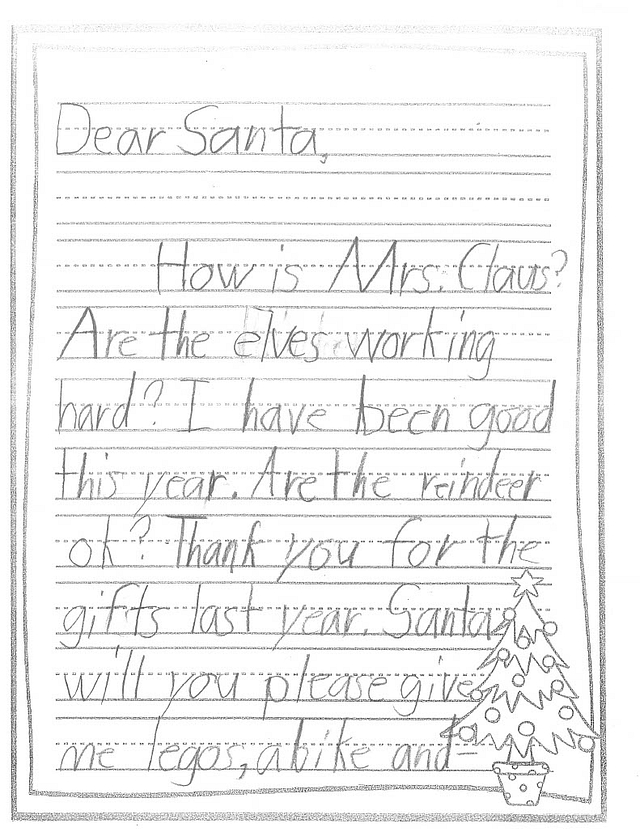 Dear Santa,
How is Mrs. Claus?
Are the elves working
hard? I have been good
this year. Are the reindeer
ok? Thank you for the
gifts last year. Santa,
will you please give
me legos, a bike and